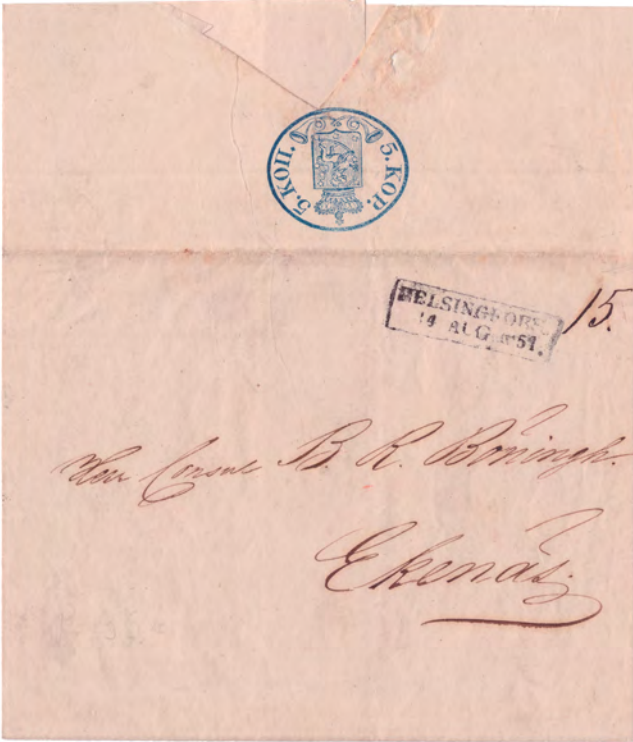 5. КОП. 5. KOP.
HELSINGFORS
14 AUG. 1851.
15.
Herr Consul B. R. Böningh.
Ekenäs.